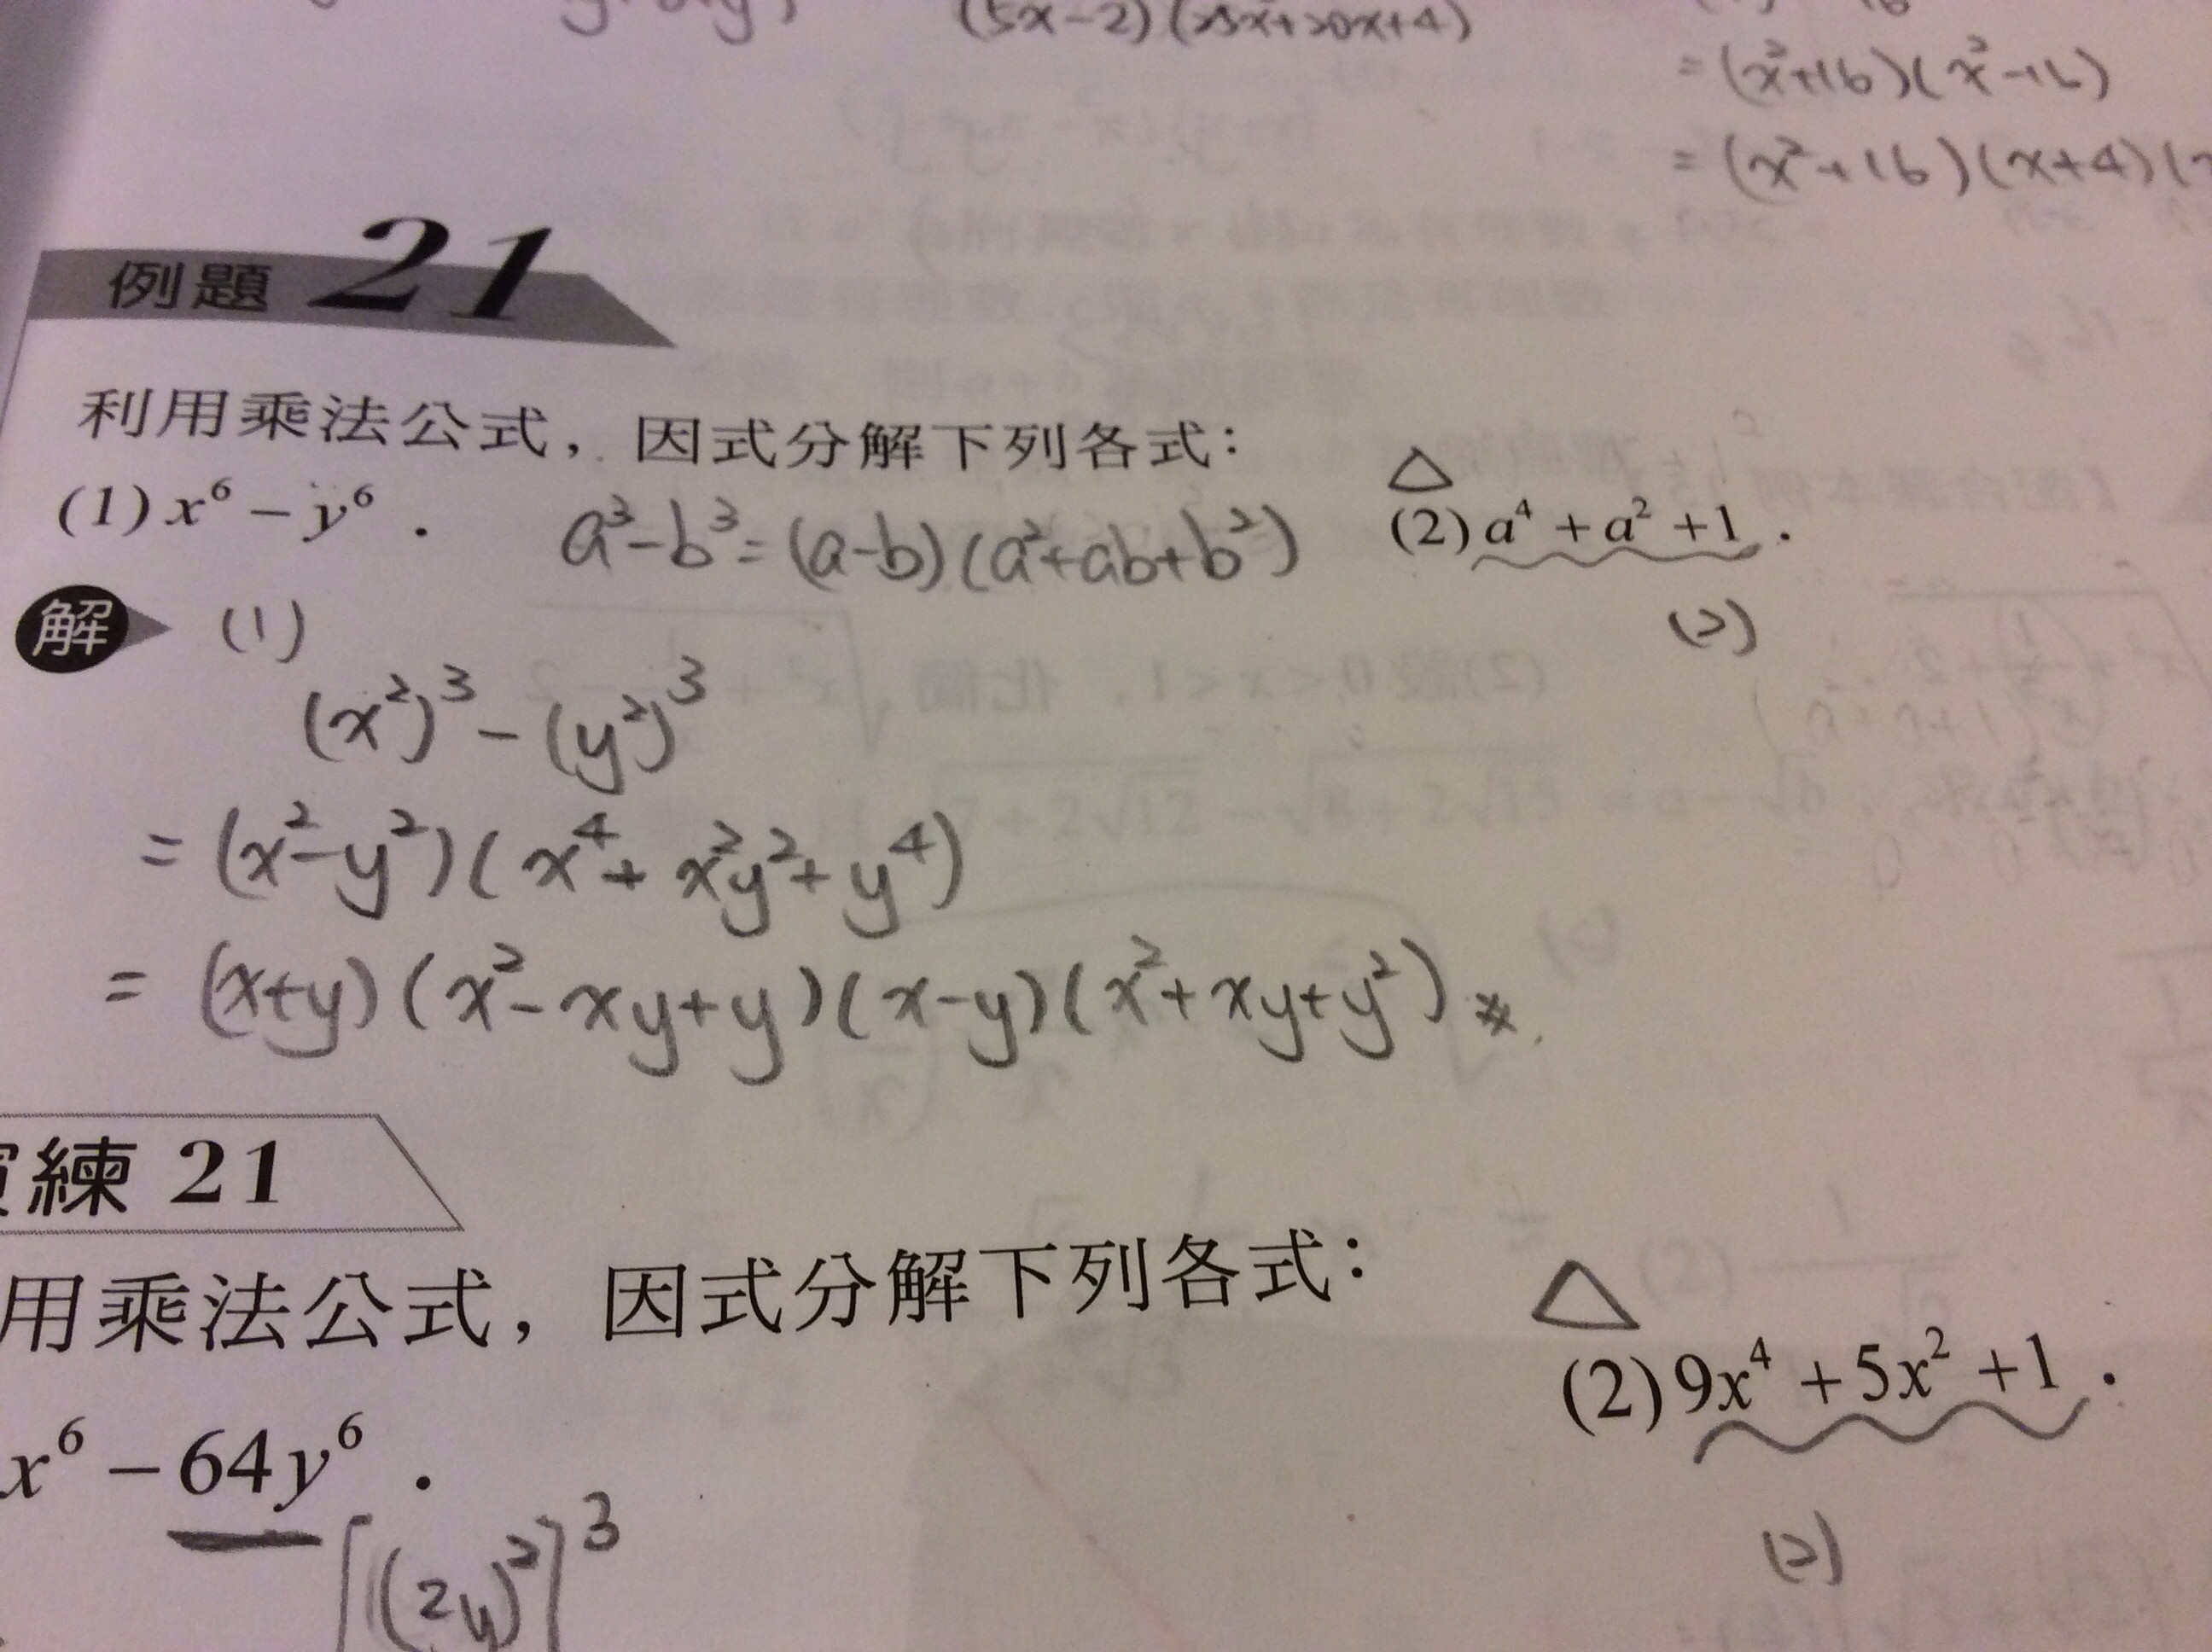 (5x-2)(25x²+20x+4)
=(x²+16)(x²-16)
=(x²+16)(x+4)(
例題 21
利用乘法公式，因式分解下列各式：
(1) x⁶ − y⁶ .
a³-b³=(a-b)(a²+ab+b²)
△
(2) a⁴ + a² + 1 .
解 (1)
(2)
(x²)³-(y²)³
=(x²-y²)(x⁴+x²y²+y⁴)
=(x+y)(x²-xy+y)(x-y)(x²+xy+y²)※
練 21
用乘法公式，因式分解下列各式：
△
(2) 9x⁴ + 5x² + 1 .
x⁶ − 64y⁶ .
[(2y)²]³
(2)